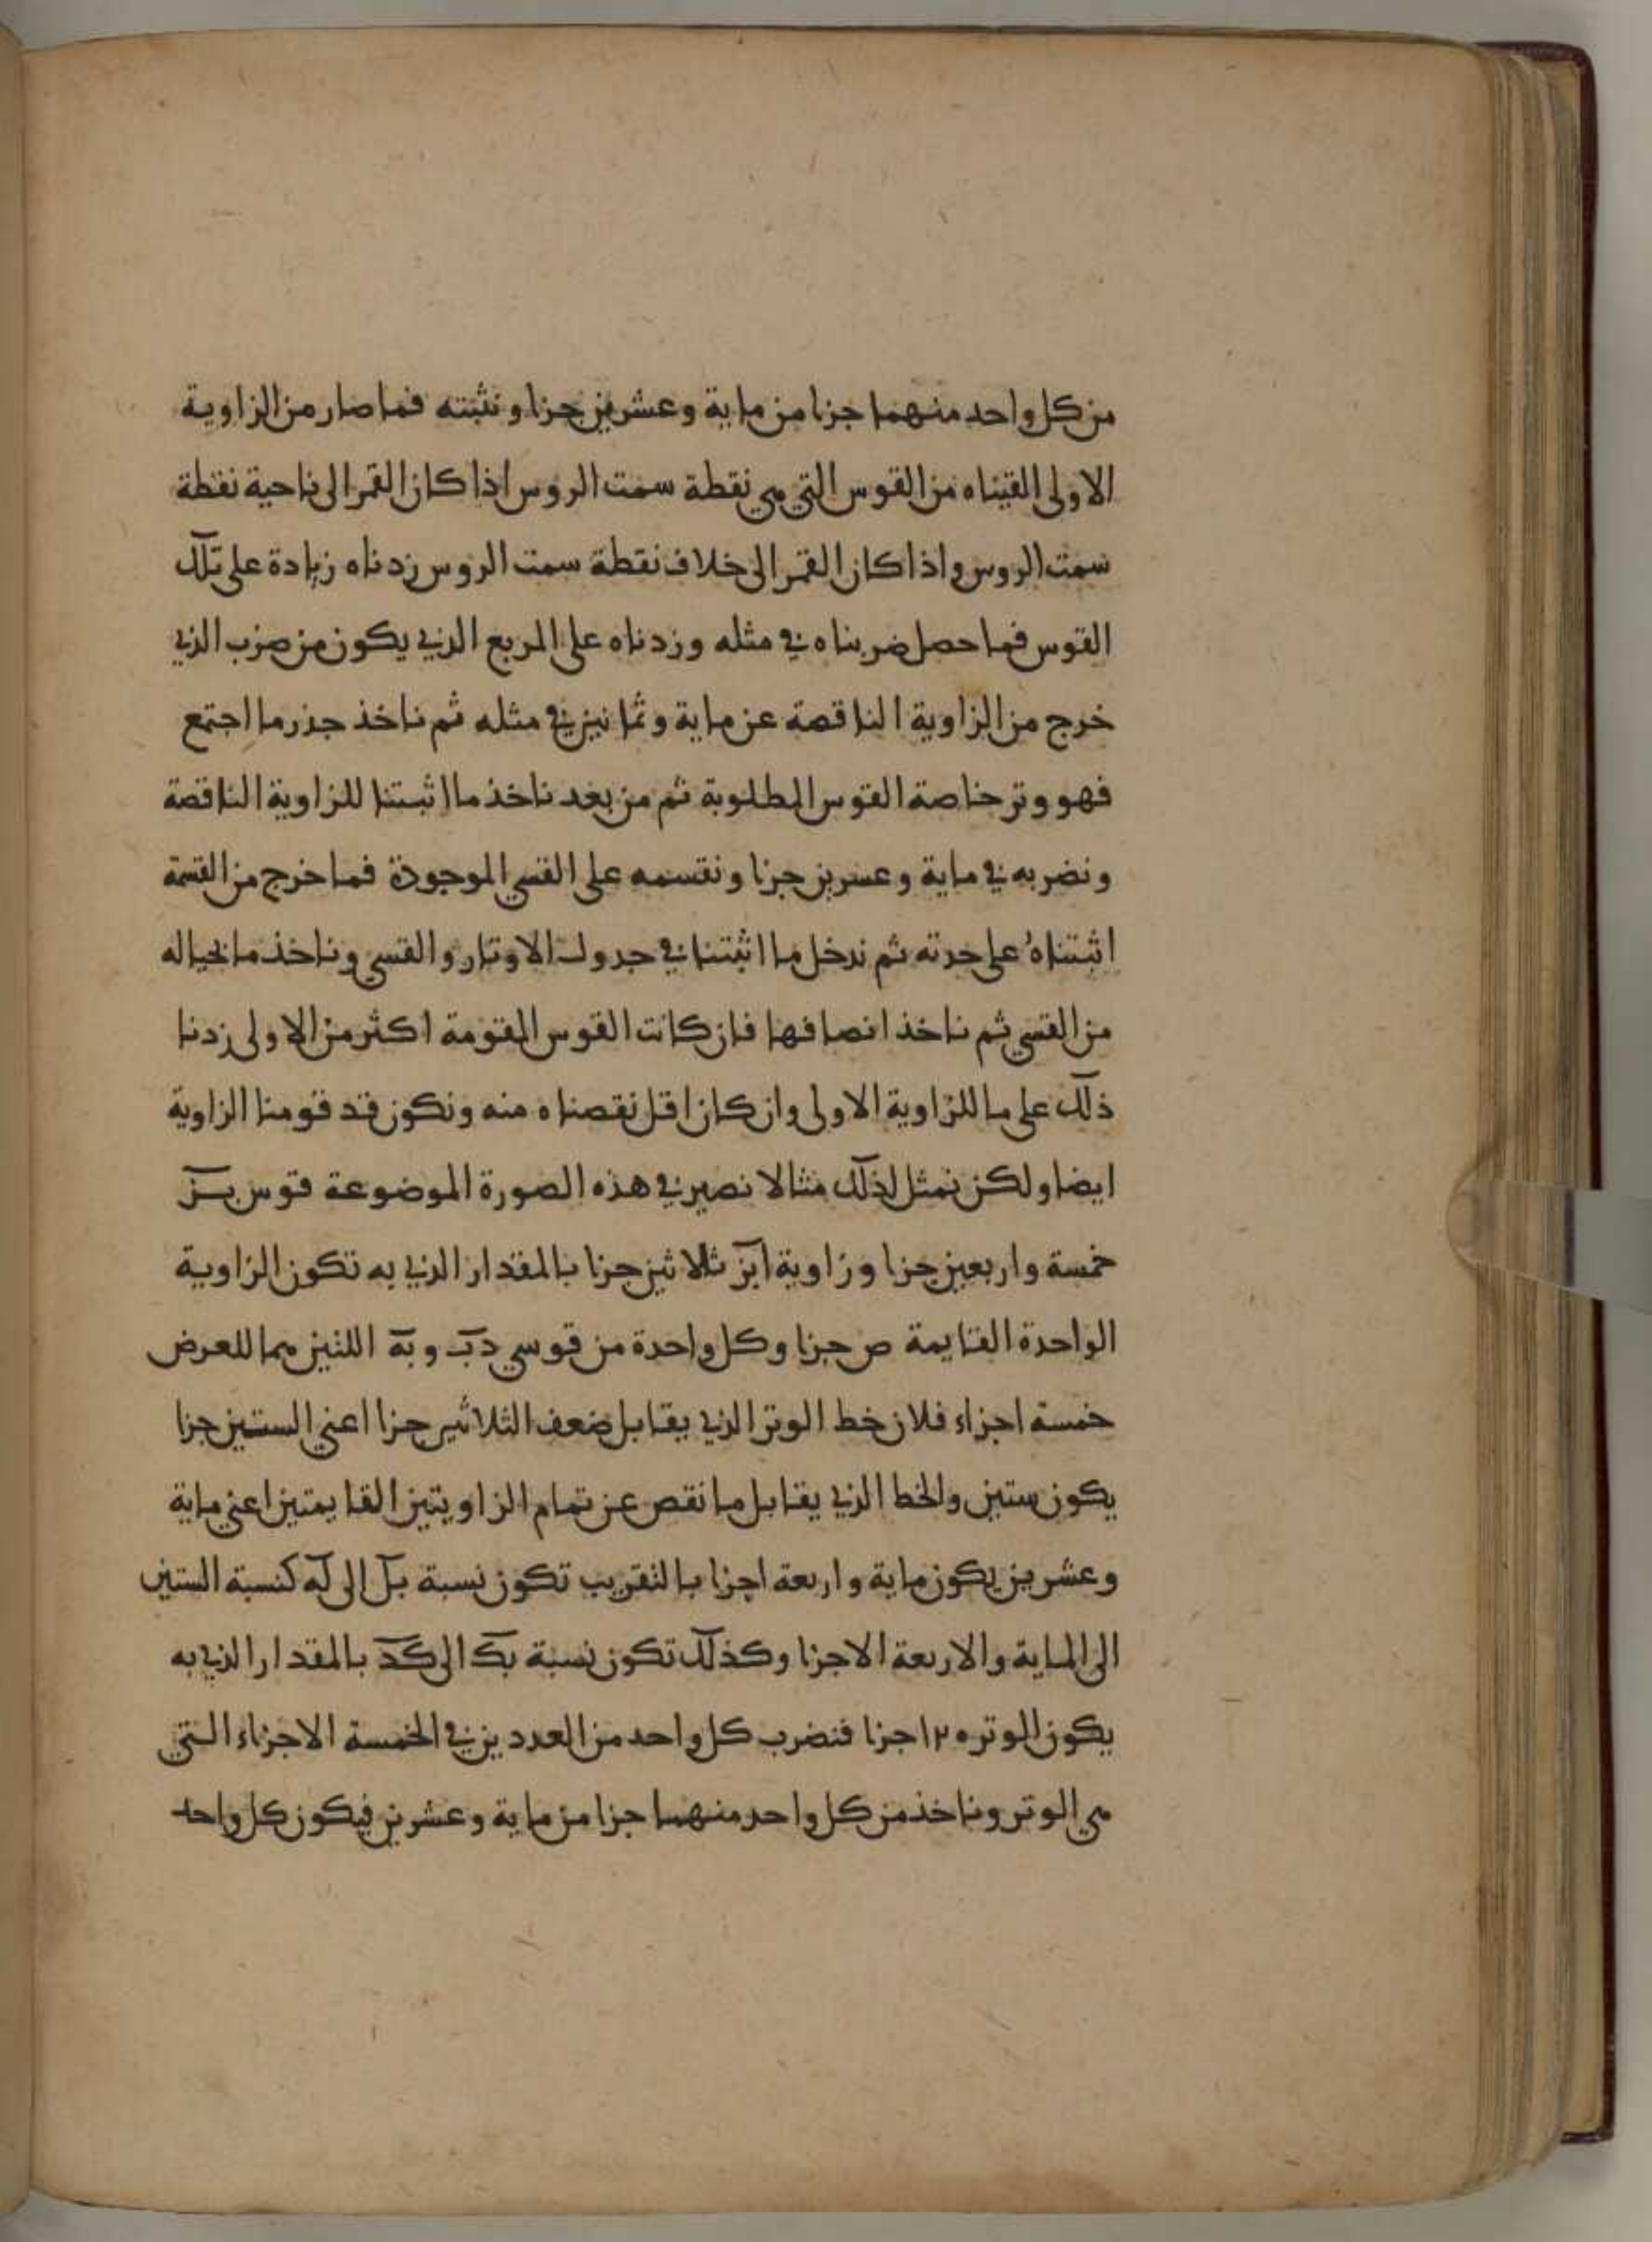 من كل واحد منهما جزا من ماية وعشرين جزا ونثبته فما صار من الزاوية
الاولى القيناه من القوس التي هي نقطة سمت الروس اذا كان القمر الى ناحية نقطة
سمت الروس واذا كان القمر الى خلاف نقطة سمت الروس زدناه زيادة على تلك
القوس فما حصل ضربناه في مثله وزدناه على المربع الذي يكون من ضرب الذي
خرج من الزاوية الناقصة عن ماية وثمانين في مثله ثم ناخذ جذر ما اجتمع
فهو وتر خاصة القوس المطلوبة ثم من بعد ناخذ ما اثبتنا للزاوية الناقصة
ونضربه في ماية وعسرين جزا ونقسمه على القسي الموجودة فما خرج من القسمة
اثبتناه على حدته ثم ندخل ما اثبتنا في جدول الاوتار والقسي وناخذ ما بحياله
من القسي ثم ناخذ انصافها فان كانت القوس المقومة اكثر من الاولى زدنا
ذلك على ما للزاوية الاولى وان كان اقل نقصناه منه ونكون قد قومنا الزاوية
ايضا ولكن نمثل لذلك مثالا نصير في هذه الصورة الموضوعة قوس بز
خمسة واربعين جزا وزاوية ابز ثلاثين جزا بالمقدار الذي به تكون الزاوية
الواحدة القايمة ص جزا وكل واحدة من قوسي دب وبه اللتين هما للعرض
خمسة اجزاء فلان خط الوتر الذي يقابل ضعف الثلاثين جزا اعني الستين جزا
يكون ستين والخط الذي يقابل ما نقص عن تمام الزاويتين القايمتين اعني ماية
وعشرين يكون ماية واربعة اجزا بالتقريب تكون نسبة بل الى له كنسبة الستين
الى الماية والاربعة الاجزا وكذلك تكون نسبة بك الى كد بالمقدار الذي به
يكون الوتر ١٢٥ جزا فنضرب كل واحد من العددين في الخمسة الاجزاء التي
هي الوتر وناخذ من كل واحد منهما جزا من ماية وعشرين فيكون كل واحد